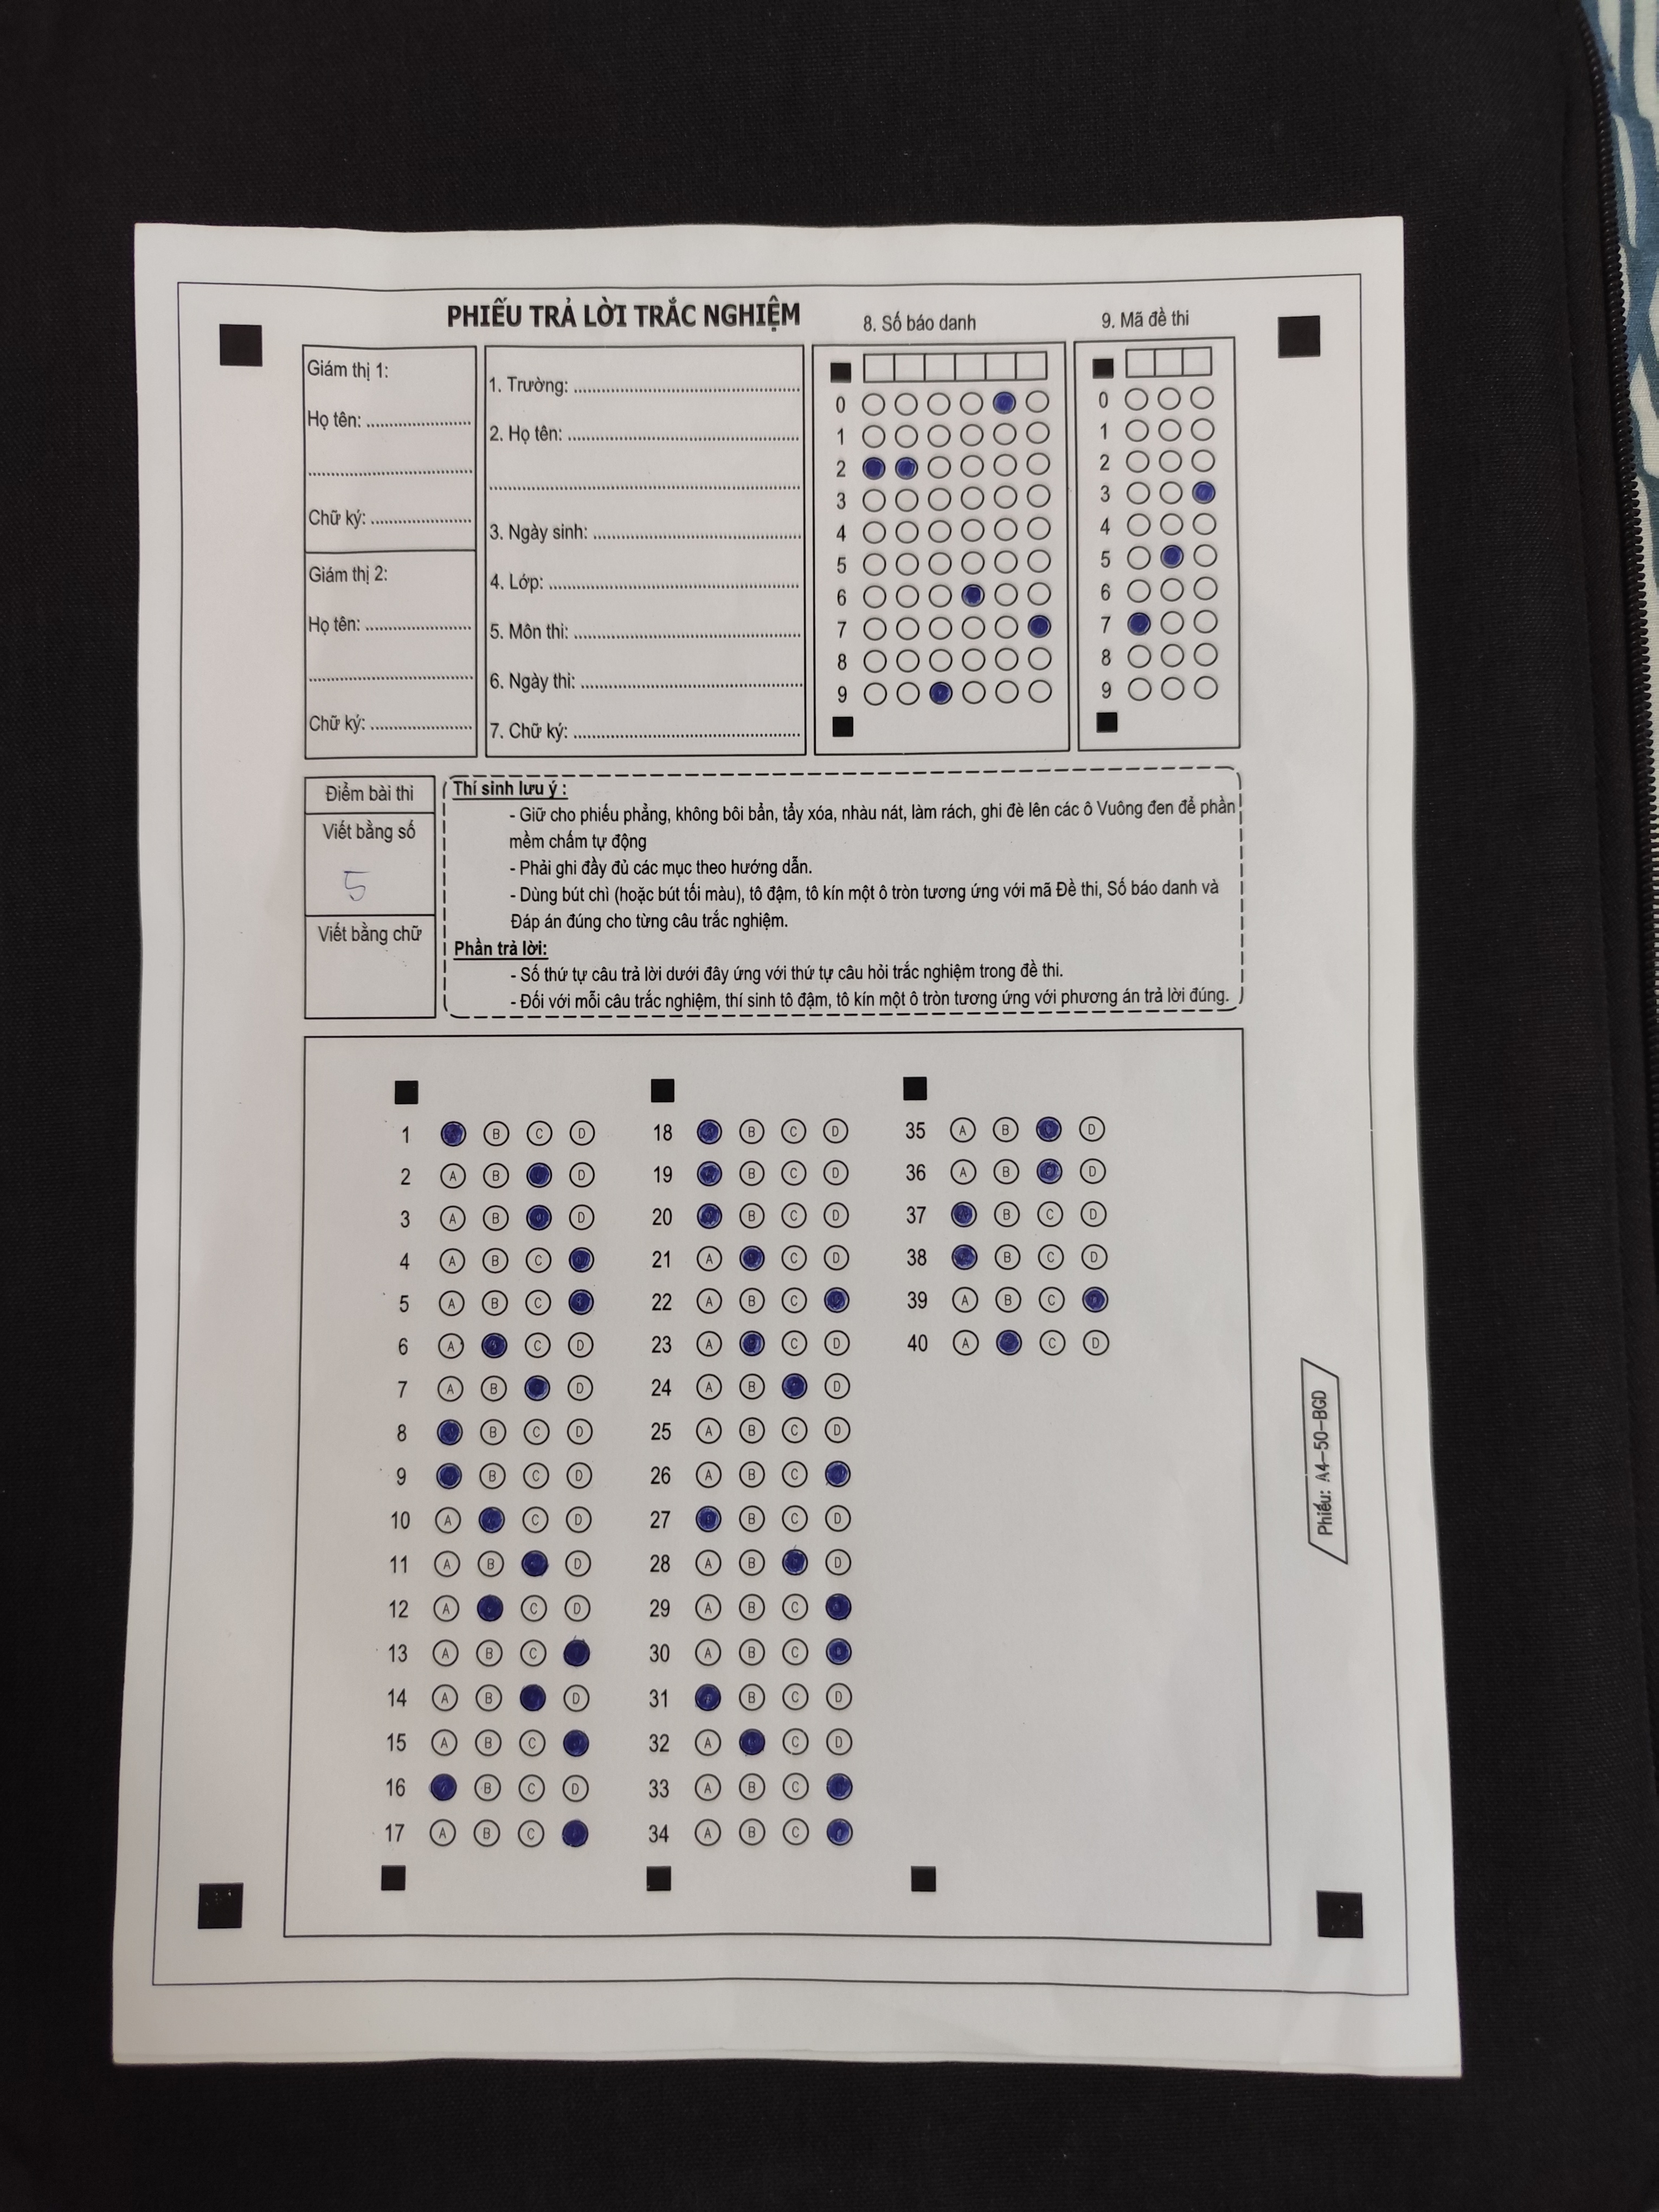 PHIẾU TRẢ LỜI TRẮC NGHIỆM
8. Số báo danh
9. Mã đề thi
Giám thị 1:
Họ tên: ........................
........................
Chữ ký: ........................
Giám thị 2:
Họ tên: ........................
........................
Chữ ký: ........................
1. Trường: ........................
2. Họ tên: ........................
........................
3. Ngày sinh: ........................
4. Lớp: ........................
5. Môn thi: ........................
6. Ngày thi: ........................
7. Chữ ký: ........................
0
1
2
3
4
5
6
7
8
9
0
1
2
3
4
5
6
7
8
9
Điểm bài thi
Viết bằng số
5
Viết bằng chữ
Thí sinh lưu ý :
- Giữ cho phiếu phẳng, không bôi bẩn, tẩy xóa, nhàu nát, làm rách, ghi đè lên các ô Vuông đen để phần
mềm chấm tự động
- Phải ghi đầy đủ các mục theo hướng dẫn.
- Dùng bút chì (hoặc bút tối màu), tô đậm, tô kín một ô tròn tương ứng với mã Đề thi, Số báo danh và
Đáp án đúng cho từng câu trắc nghiệm.
Phần trả lời:
- Số thứ tự câu trả lời dưới đây ứng với thứ tự câu hỏi trắc nghiệm trong đề thi.
- Đối với mỗi câu trắc nghiệm, thí sinh tô đậm, tô kín một ô tròn tương ứng với phương án trả lời đúng.
1 B C D
2 A B D
3 A B D
4 A B C
5 A B C
6 A C D
7 A B D
8 B C D
9 B C D
10 A C D
11 A B D
12 A C D
13 A B C
14 A B D
15 A B C
16 B C D
17 A B C
18 B C D
19 B C D
20 B C D
21 A C D
22 A B C
23 A C D
24 A B D
25 A B C D
26 A B C
27 B C D
28 A B D
29 A B C
30 A B C
31 B C D
32 A C D
33 A B C
34 A B C
35 A B D
36 A B D
37 B C D
38 B C D
39 A B C
40 A C D
Phiếu: A4-50-BGD